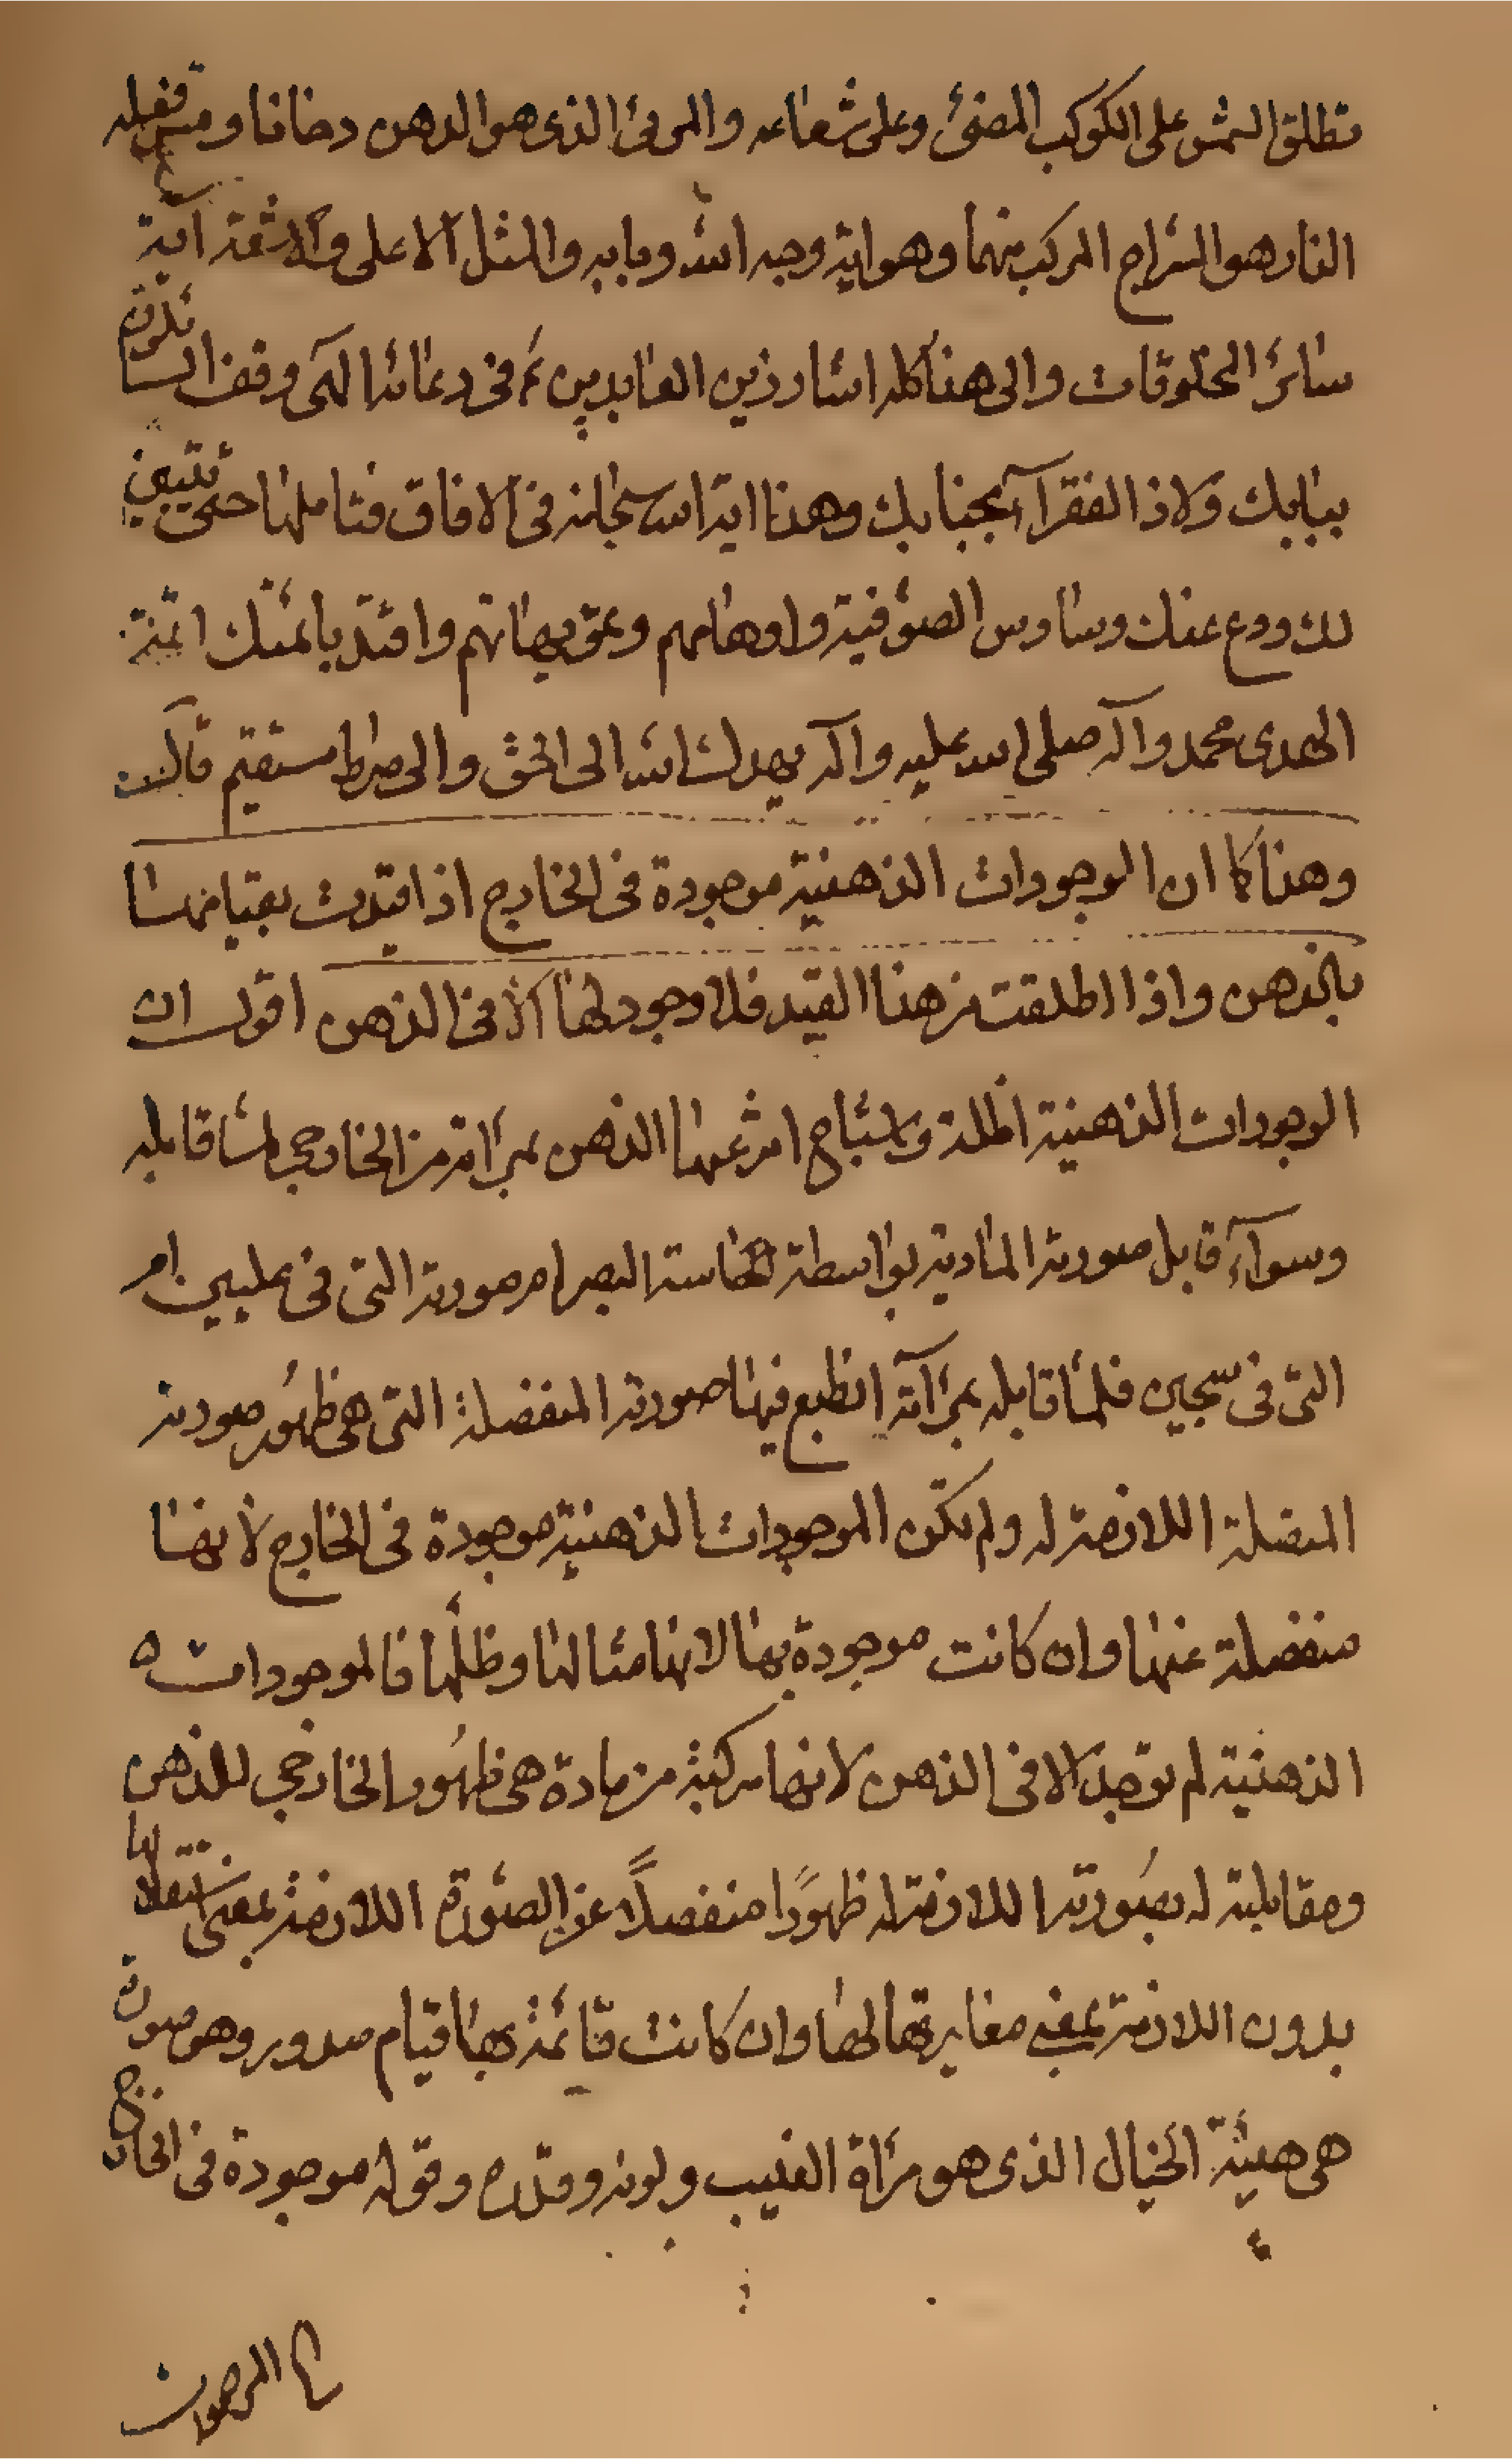 تطلق الشمس على الكوكب المضئ وعلى شعاعه والمرئى الذى هو الدهن دخانا ومس فعله
النار هو السراج المركب منهما وهو اية وجه الله وبابه والمثل الاعلى والاشعة آية
سائر المخلوقات والى هذا كله اشار زين العابدين ع في دعائه الهى وقف السائلون
ببابك ولاذ الفقرآء بجنابك وهذا اية الله سبحانه فى الافاق فتاملها حتى يتبين
لك ودع عنك وساوس الصوفية واوهامهم وتمويهاتهم واقتد بائمتك ائمة
الهدى محمد وآله صلى الله عليه وآله يهدك الله الى الحق والى صراط مستقيم قال
وهذا كما ان الوجودات الذهنية موجودة فى الخارج اذا قيدت بقيامها
بالذهن واذا اطلقت من هذا القيد فلا وجود لها الا فى الذهن اقول ان
الوجودات الذهنية اظلة واشباح انتزعها الذهن بمرآته من الخارجى لما قابله
وسوآء قابل صورته المادية بواسطة الحاسة البصر ام صورته التى فى عليين ام
التى فى سجين فلما قابله بمرآته انطبع فيها صورته المنفصلة التى هى ظهور صورته
المتصلة اللازمة له ولم تكن الموجودات الذهنية موجودة فى الخارج لانها
منفصلة عنها وان كانت موجودة بها لانها مثالها وظلها فالموجودات
الذهنية لم توجد الا فى الذهن لانها مركبة من مادة هى ظهور الخارجى للذهن
ومقابلته له بصورته اللازمة له ظهورًا منفصلًا عن الصورة اللازمة بمعنى استقلالها
بدون اللازمة بمعنى مغايرتها لها وان كانت قائمة بها قيام صدور وهو صورة
هى هيئة الخيال الذى هو مرآة الغيب ولونه وقدره وقوله موجودة فى الخارج